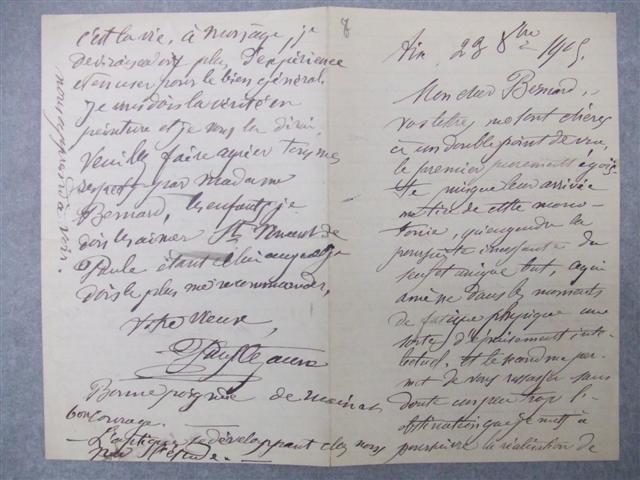 Aix, 23 8bre 1905.
Mon cher Bernard,
vos lettres me sont chères
à un double point de vue,
le premier purement égois-
te puisque leur arrivée
me tire de cette mono-
tonie, qu'engendre la
poursuite incessante du
seul et unique but, ce qui
amène dans les moments
de fatigue physique une
sorte d'épuisement intel-
lectuel, et le second me per-
met de vous ressasser sans
doute un peu trop l'
obstination que je mets à
poursuivre la réalisation de
7
c'est la vie, à mon âge, je
devrais avoir plus d'expérience
et en user pour le bien général.
Je vous dois la vérité en
peinture et je vous la dirai.
Veuillez faire agréer tous mes
respects par Madame
Bernard, les enfants je
dois les aimer St Vincent de
Paule étant celui auquel je
dois le plus me recommander,
votre vieux,
Paul Cezanne
Bonne poignée de main et
bon courage. —
L'optique, se développant chez nous
par l'étude. —
nous apprend à voir.